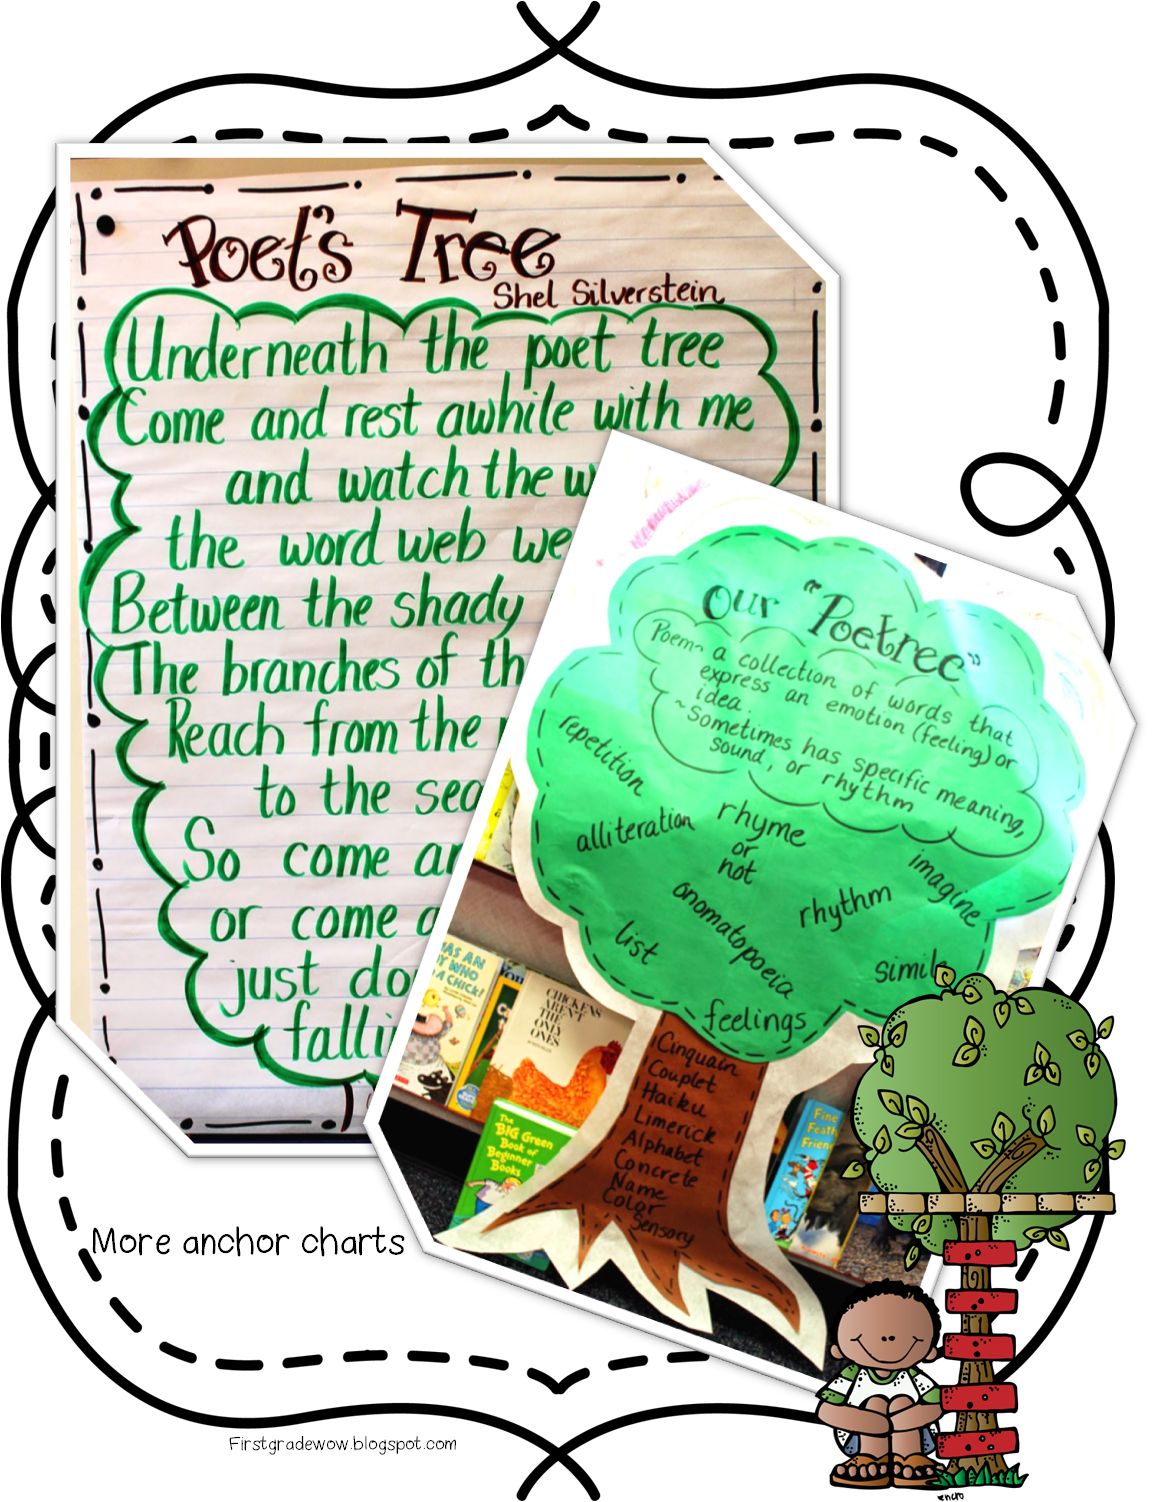 Poet's Tree
Shel Silverstein
Underneath the poet tree
Come and rest awhile with me
and watch the w
the word web we
Between the shady
The branches of th
Reach from the
to the sea
So come an
or come a
just do
falli
Our "Poetree"
Poem~ a collection of words that
express an emotion (feeling) or
idea.
~Sometimes has specific meaning,
sound, or rhythm
repetition
alliteration
rhyme
or
not
imagine
onomatopoeia
rhythm
list
simile
feelings
Cinquain
Couplet
Haiku
Limerick
Alphabet
Concrete
Name
Color
Sensory
CHICKENS
AREN'T
THE
ONLY
ONES
The
BIG Green
Book of
Beginner
Books
Fine
Feath
Frien
More anchor charts
Firstgradewow.blogspot.com